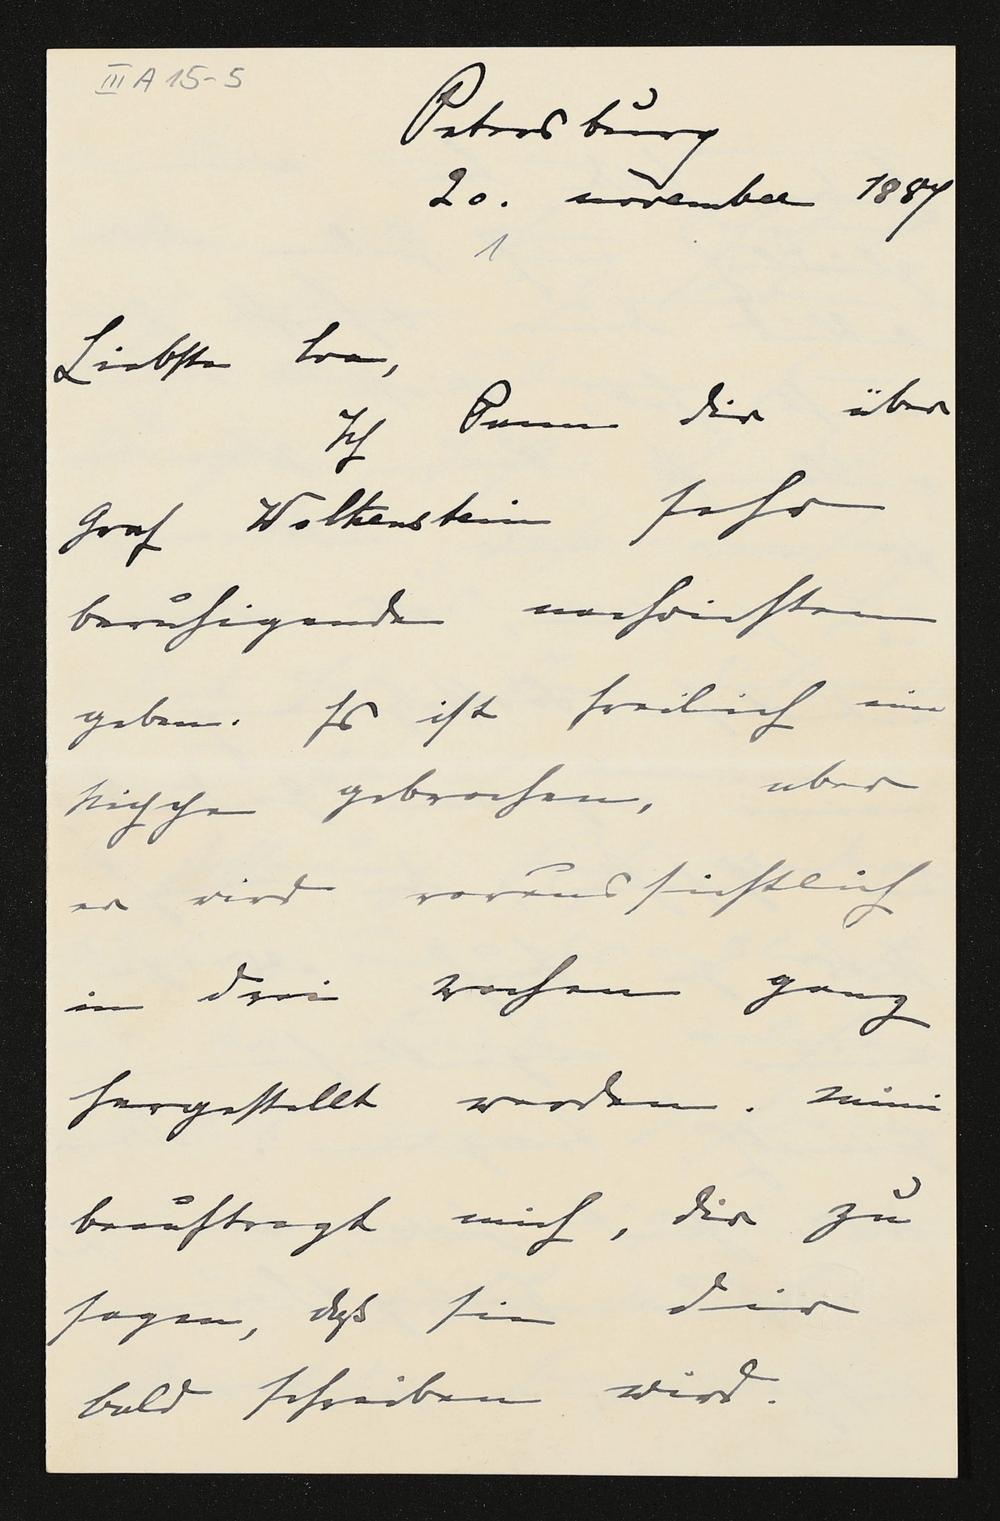 III A 15-5
Petersburg
20. november 1887
1
Liebste Eva,
Ich kann dir über
Graf Wolkenstein sehr
beruhigende nachrichten
geben. Es ist freilich eine
gebrochen, aber
er wird voraussichtlich
in drei wochen ganz
hergestellt werden. Mimi
beauftragt mich, dir zu
sagen, daß sie dir
bald schreiben wird.